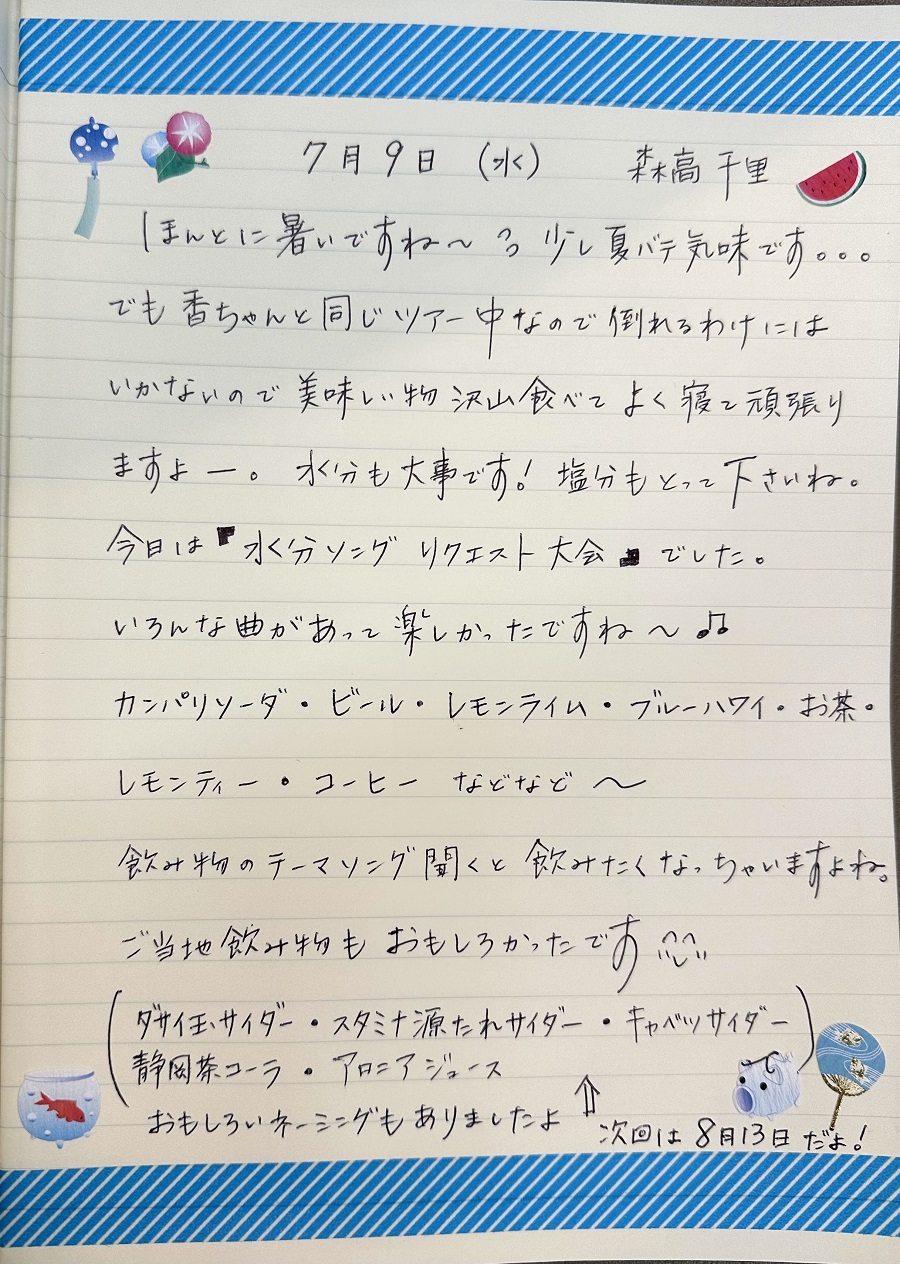 7月9日 (水) 森高千里
ほんとに暑いですね〜 少し夏バテ気味です。。。
でも香ちゃんと同じツアー中なので倒れるわけには
いかないので美味しい物沢山食べてよく寝て頑張り
ますよー。水分も大事です!塩分もとって下さいね。
今日は『水分ソングリクエスト大会』でした。
いろんな曲があって楽しかったですね〜♫
カンパリソーダ・ビール・レモンライム・ブルーハワイ・お茶・
レモンティー・コーヒー などなど〜
飲み物のテーマソング聞くと飲みたくなっちゃいますよね。
ご当地飲み物もおもしろかったです
(ダサイ玉サイダー・スタミナ源たれサイダー・キャベツサイダー
静岡茶コーラ・アロニアジュース)
おもしろいネーミングもありましたよ ⇧
次回は8月13日だよ!